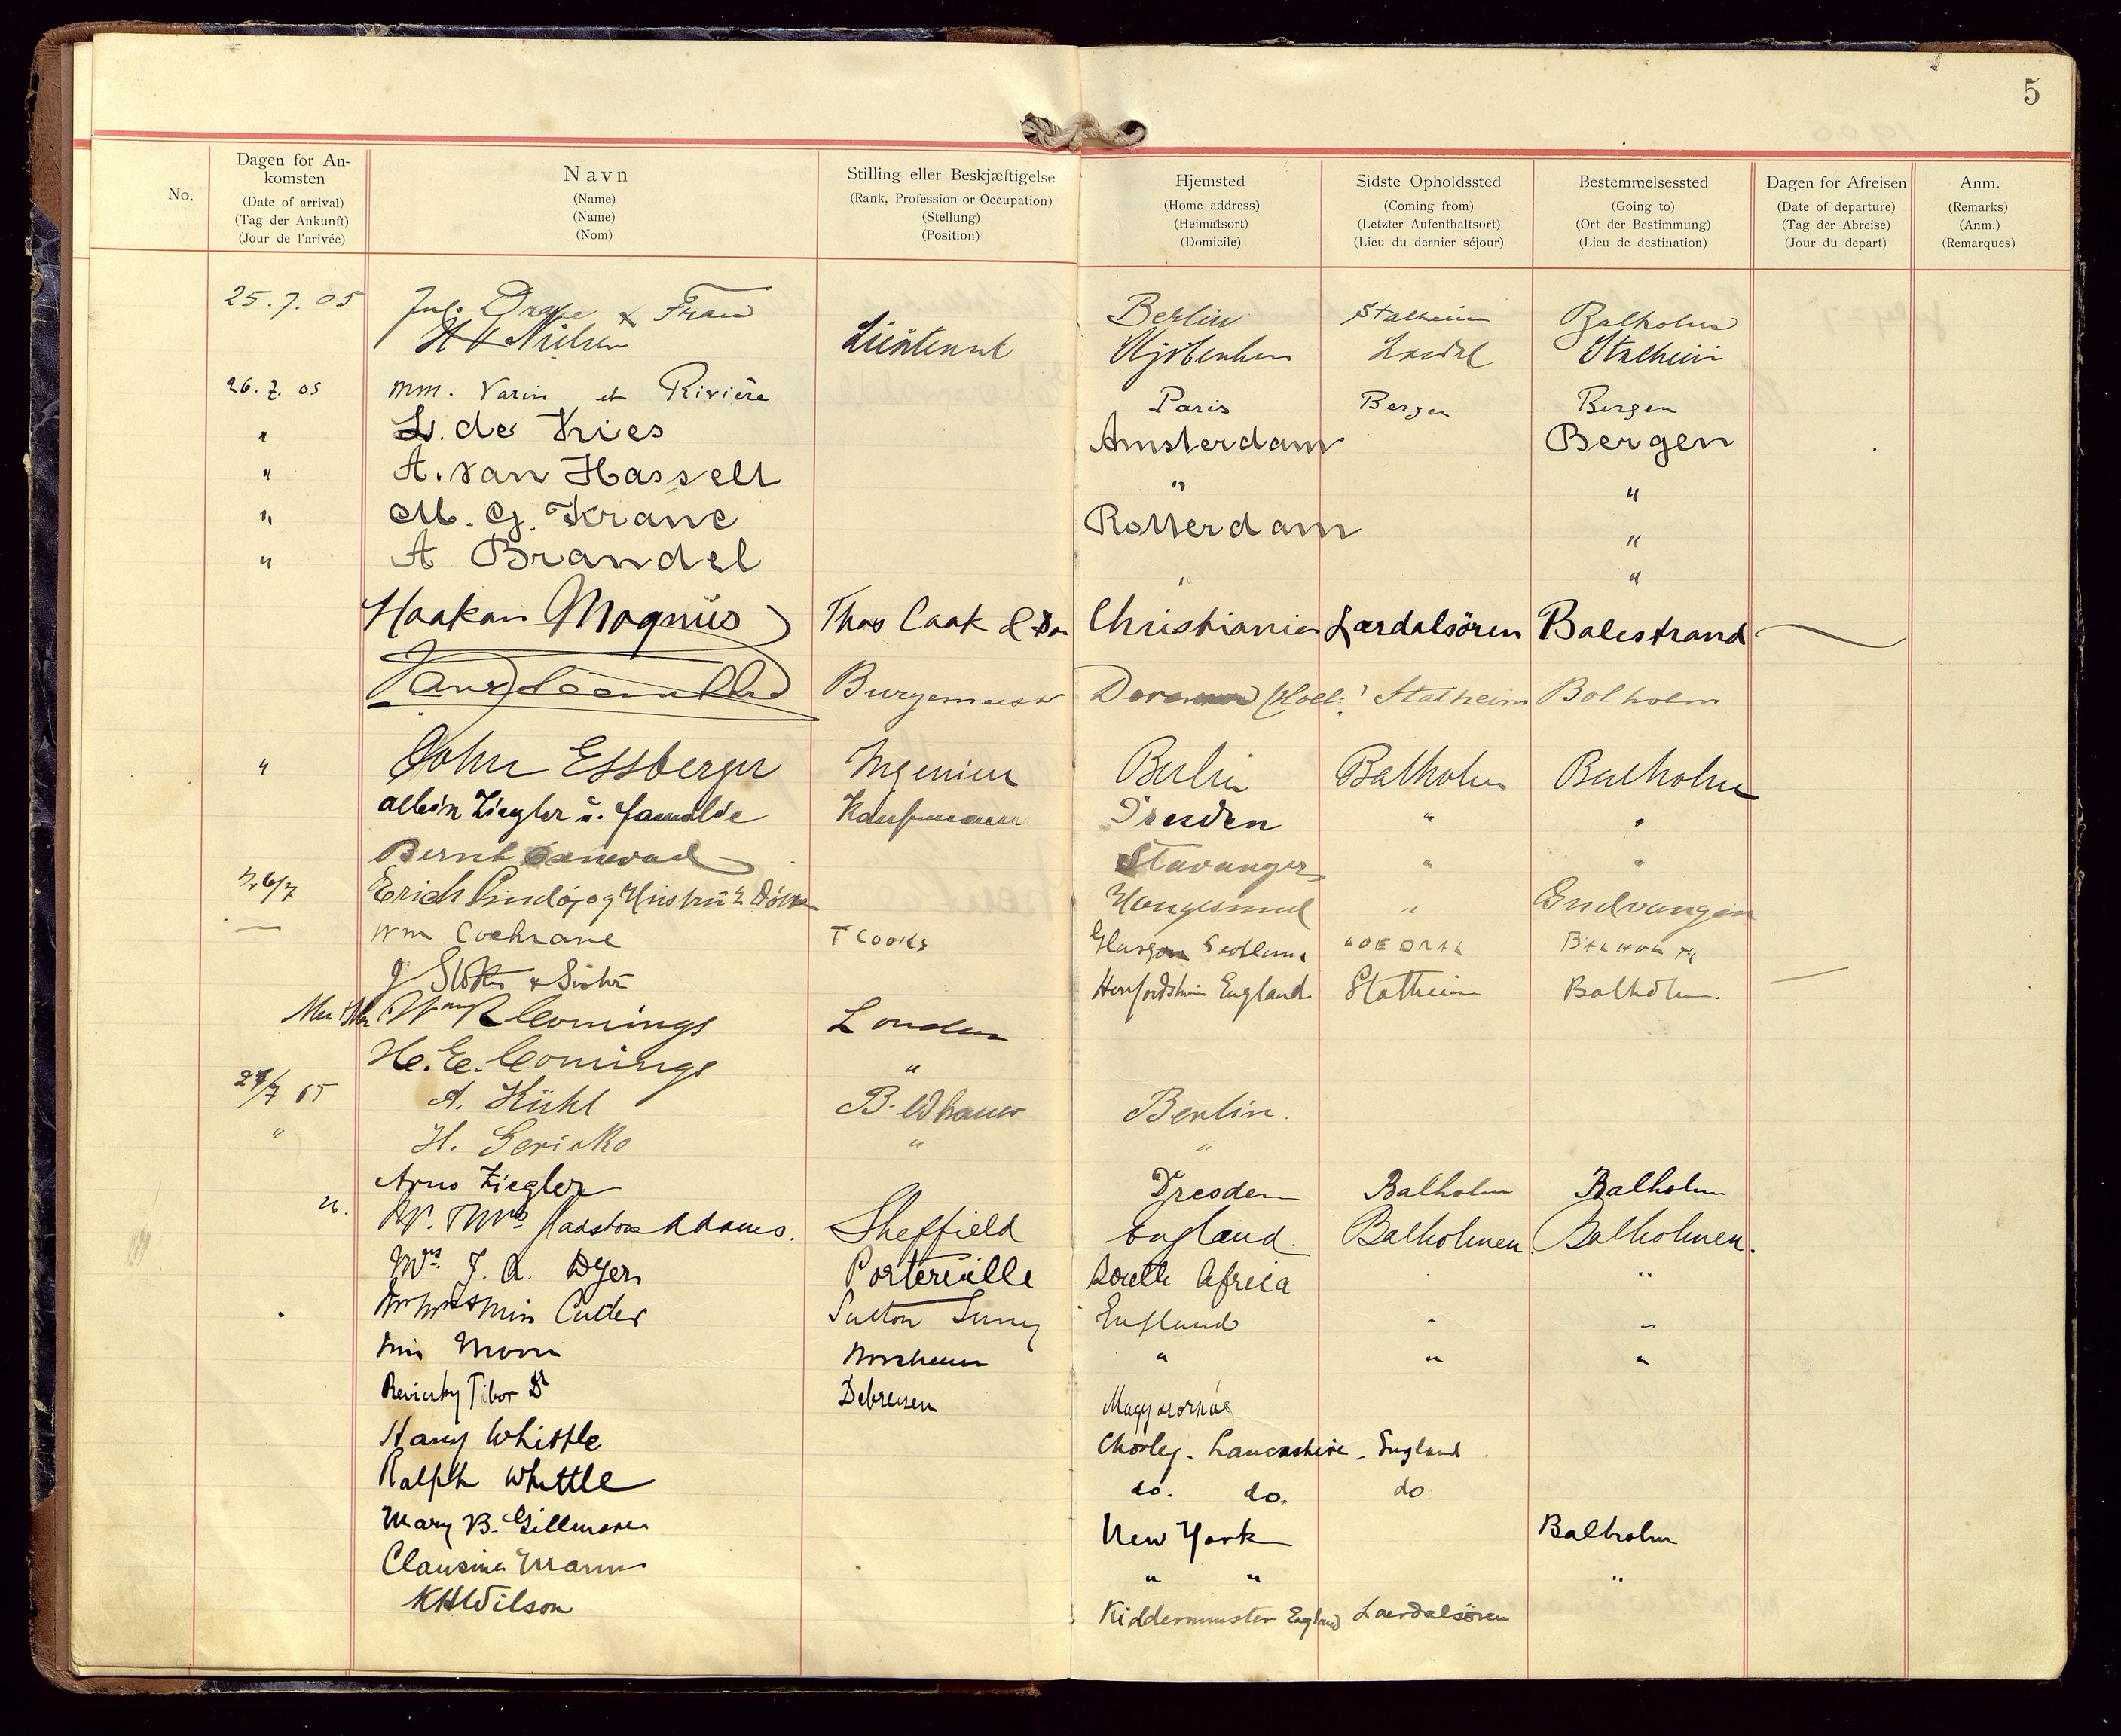 5
No.
Dagen for An-
komsten
(Date of arrival)
(Tag der Ankunft)
(Jour de l'arivée)
Navn
(Name)
(Name)
(Nom)
Stilling eller Beskjæftigelse
(Rank, Profession or Occupation)
(Stellung)
(Position)
Hjemsted
(Home address)
(Heimatsort)
(Domicile)
Sidste Opholdssted
(Coming from)
(Letzter Aufenthaltsort)
(Lieu du dernier séjour)
Bestemmelsessted
(Going to)
(Ort der Bestimmung)
(Lieu de destination)
Dagen for Afreisen
(Date of departure)
(Tag der Abreise)
(Jour du depart)
Anm.
(Remarks)
(Anm.)
(Remarques)
25.7.05 Jul. & Frau Berlin Stalheim Balholm
Nielsen Lieutenant Kjøbenhavn Stalheim
26.7.05 MM. Varin et Rivière Paris Bergen Bergen
" L. de Vries Amsterdam Bergen
" A. van Hasselt " "
" M. G. Krane Rotterdam "
" A Brandel " "
Haakon Magnus Thos Cook & Son Christiania Lærdalsören Balestrand
Burgemeester Stalheim Balholm
" John Essberger Ingenieur Berlin Balholm Balholm
Albin Ziegler u. Familie Kaufmann Dresden " "
Bernt Stavanger " "
26/7 Erich og Hustru Haugesund " Gudvangen
— Wm Cochrane T Cooks Glasgow Scotland BALHOLM
& Sister England Stalheim Balholm.
Comings London
H. E. Comings "
27/7 05 A. Kühl Bildhauer Berlin.
" H. Gericke " "
Arno Ziegler Dresden Balholm Balholm
Adams. Sheffield England. Balholmen Balholmen.
Mrs. J. A. Dyer Porterville South Africa "
Miss Cutler Sutton Surrey England " "
Miss Moore " " "
Tibor Dr Debreczen
Harry Whittle Chorley. Lancashire. England
Ralph Whittle do. do. do
Mary B. Gillmore New York Balholm
" " "
KHWilson Kidderminster England Laerdalsören